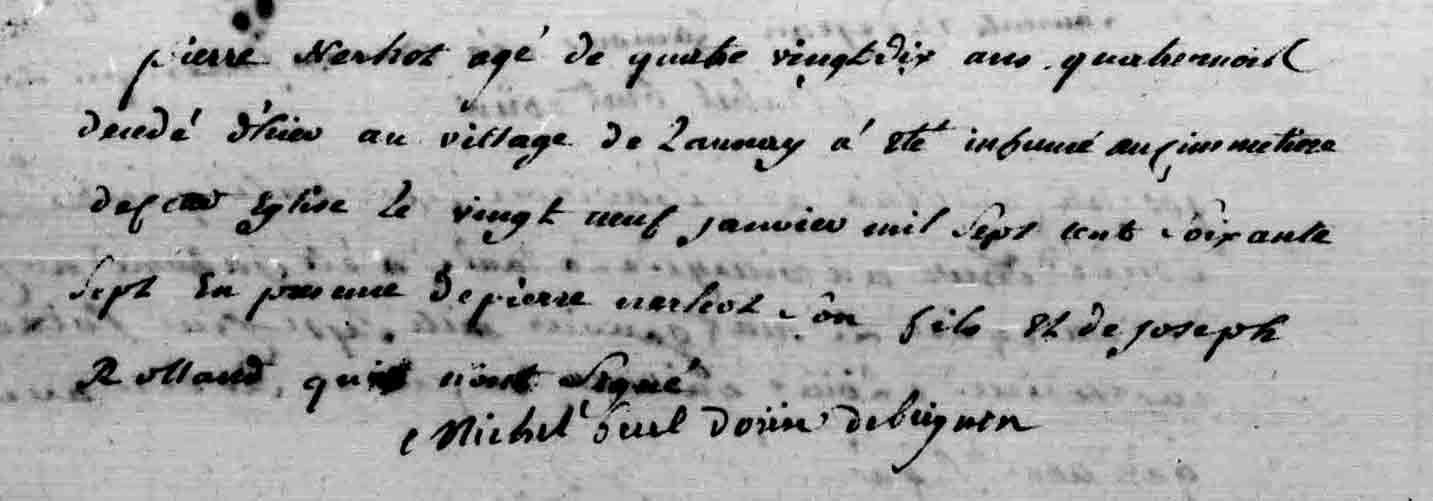 pierre Nerhot agé de quatre vingt dix ans quatre mois
decedé d'hier au village de Launay a été inhumé au cimmetiere
de cette Eglise le vingt neuf janvier mil sept cent soixante
sept En presence de pierre nerhot son fils et de joseph
Rolland qui n'ont signé
Michel